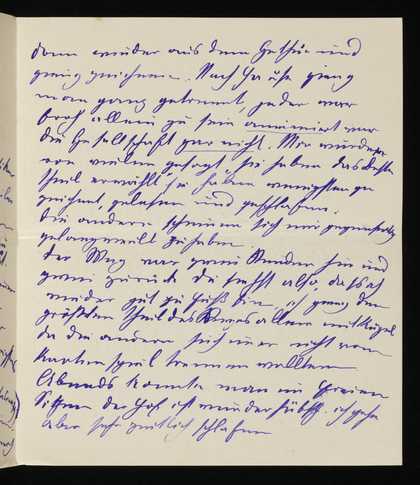 dann wieder aus dem Gestühl und
ging zeichnen. Nach Hause ging
man ganz getrennt, jeder war
froh allein zu sein animiert war
die Gesellschaft gar nicht. Mir wurde
von vielen gesagt, Sie haben das beste
Theil erwählt Sie haben wenigstens ge
zeichnet, gelesen und geschlafen.
Die andern scheinen sich nur gegenseitig
gelangweilt zu haben.
Der Weg war zwei Stunden hin und
zwei zurück du siehst also, dass ich
wieder gut zu Fuß bin, ich ging den
größten Theil des Weges allein mit
da die andern sich nicht vom
Kartenspiel trennen wollten
Abends konnte man im Freien
Sitzen der Hof ist wunderhübsch. ich gehe
aber sehr zeitlich schlafen